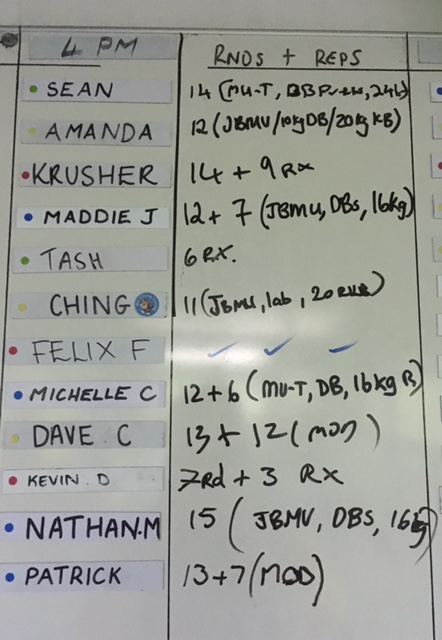 4 PM RNDS + REPS
SEAN 14 (MU-T,
AMANDA 12 (JBMU/10kgDB/20kg KB)
KRUSHER 14 + 9 RX
MADDIE J 12 + 7 (JBMU, DBs, 16kg)
TASH 6 RX.
CHING 11 (JBMU,
FELIX F
MICHELLE C 12 + 6 (MU-T, DB, 16kg
DAVE C 13 + 12 (MOD)
KEVIN. D 7Rd + 3 RX
NATHAN.M 15 ( JBMU, DBS, 16kg
PATRICK 13 + 7 (MOD)